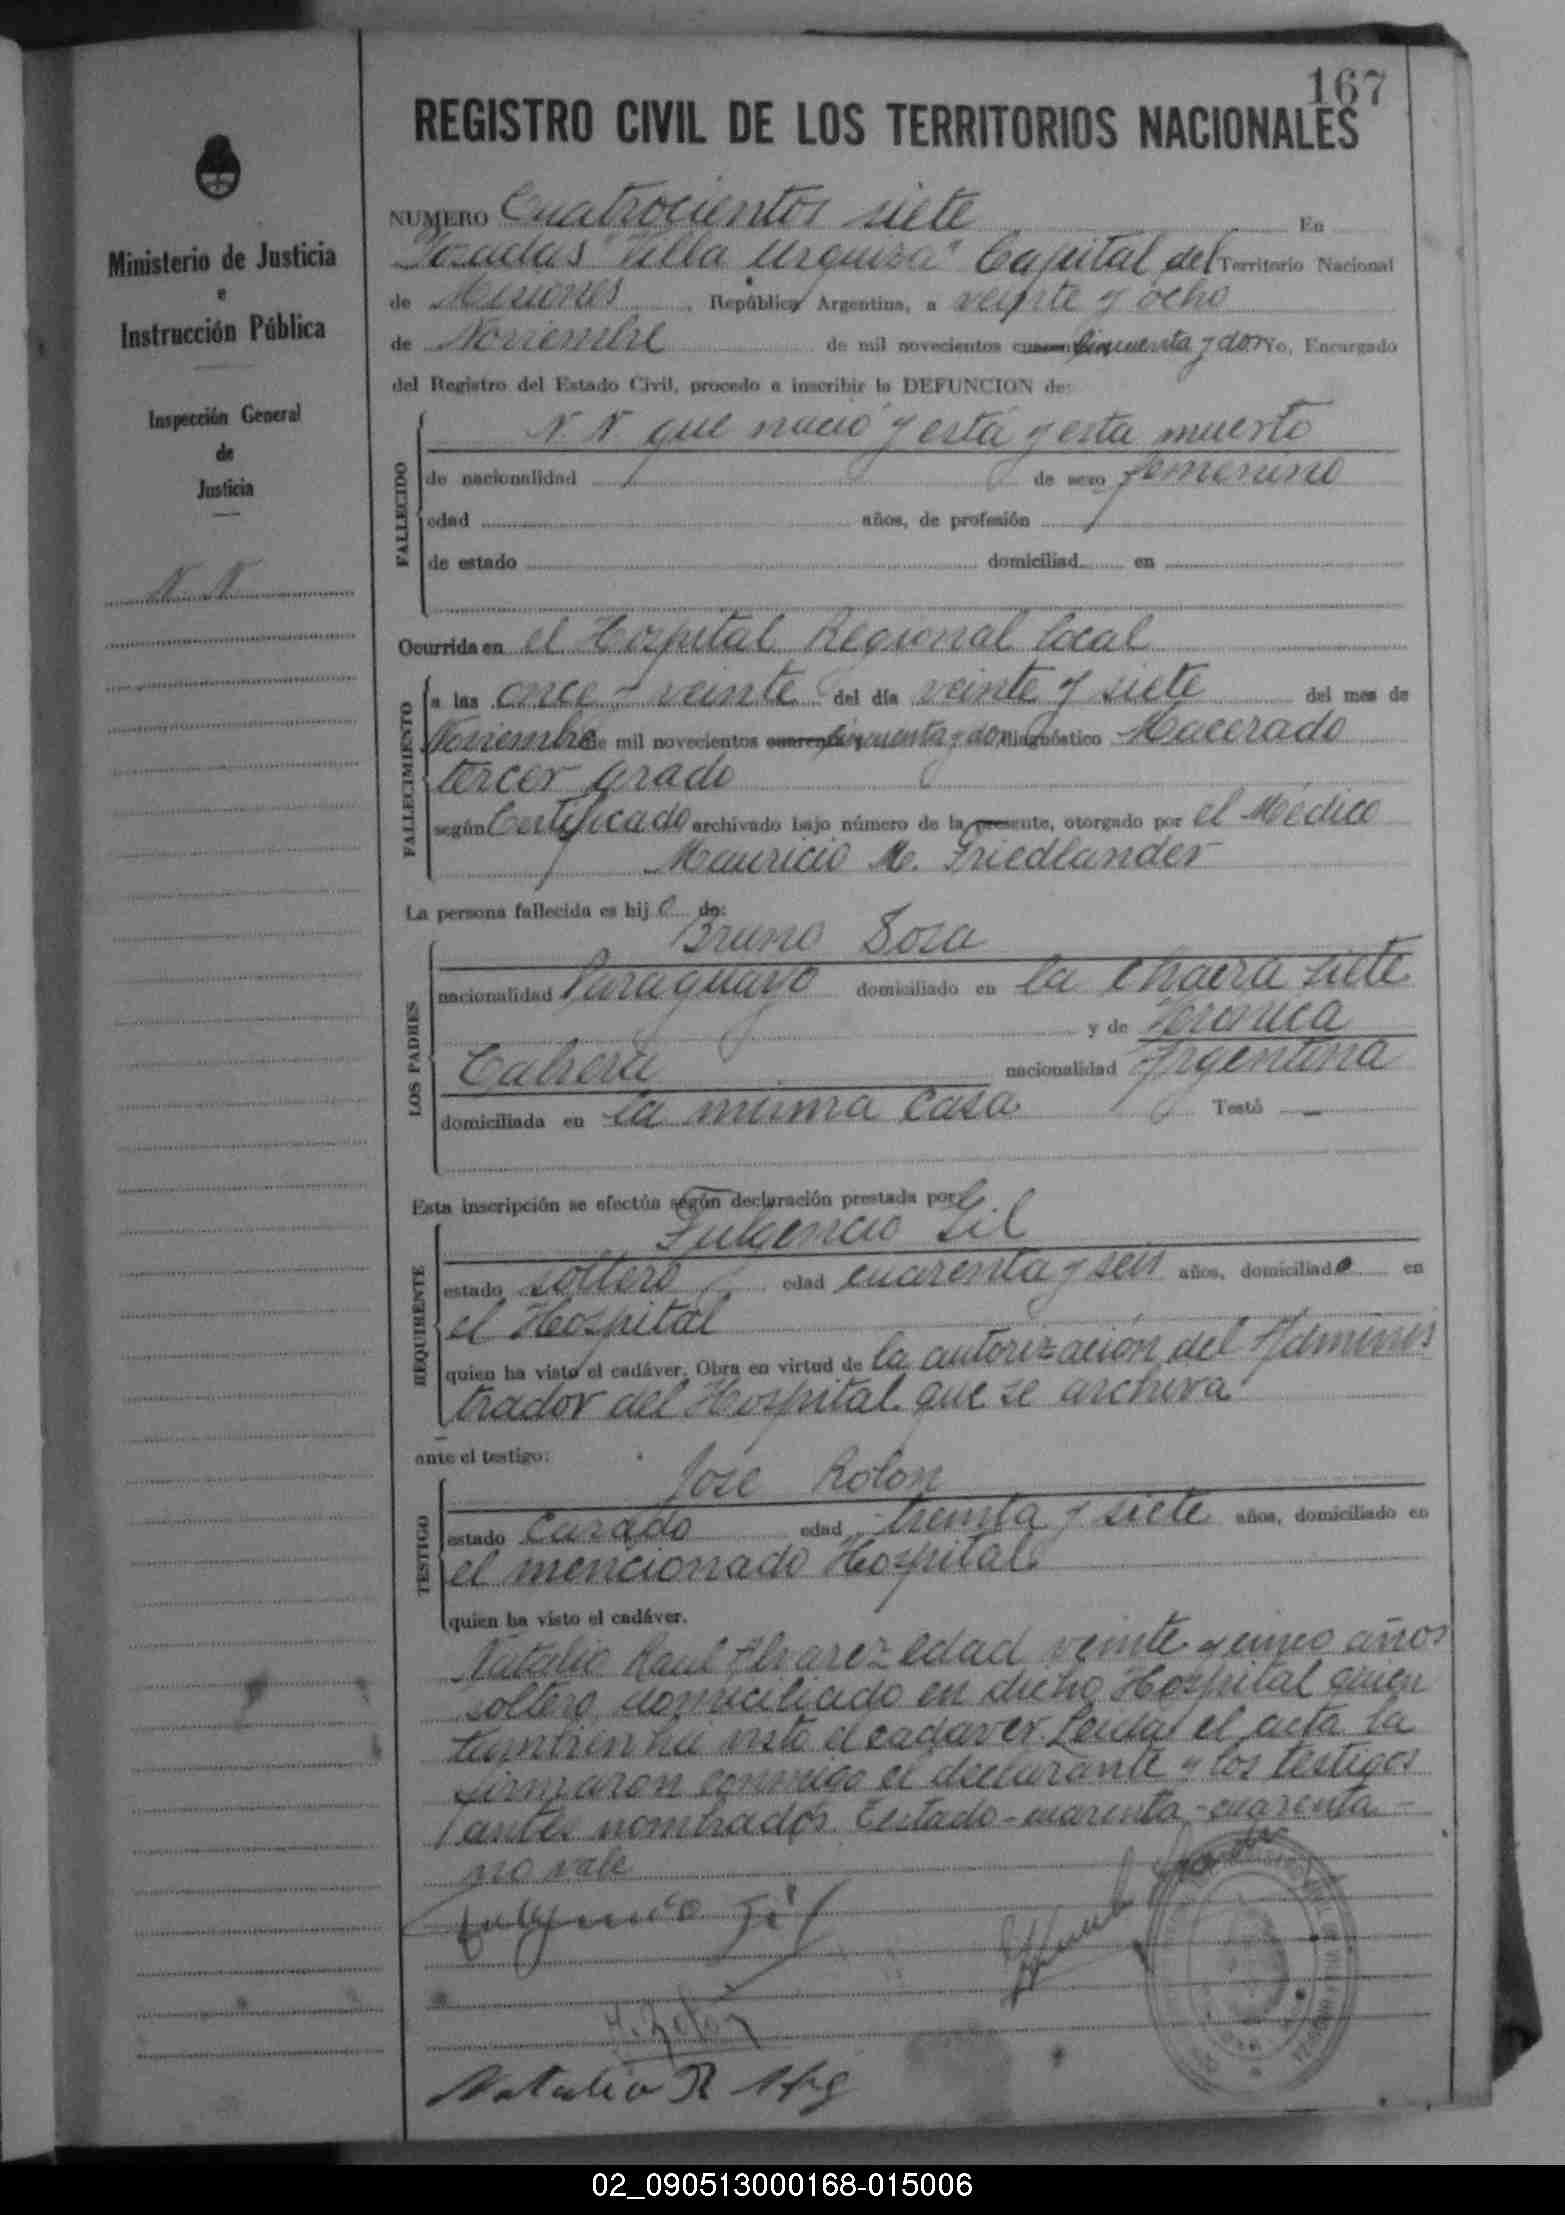 167
REGISTRO CIVIL DE LOS TERRITORIOS NACIONALES
Ministerio de Justicia
e
Instrucción Pública
Inspección General
de
Justicia
N. N.
NUMERO Cuatrocientos siete En
Posadas "Villa Urquiza" Capital del Territorio Nacional
de Misiones, República Argentina, a veinte y ocho
de Noviembre de mil novecientos cincuenta y dos Yo, Encargado
del Registro del Estado Civil, procedo a inscribir la DEFUNCION de:
N. N. que nació y está y esta muerto
FALLECIDO
de nacionalidad de sexo femenino
edad años, de profesión
de estado domiciliad en
Ocurrida en el Hospital Regional local
FALLECIMIENTO
a las once y veinte del día veinte y siete del mes de
Noviembre de mil novecientos cuarenta cincuenta y dos diagnóstico Macerado
tercer grado
según Certificado archivado bajo número de la presente, otorgado por el Médico
Mauricio M. Friedlander
La persona fallecida es hij o de:
Bruno Sosa
LOS PADRES
nacionalidad Paraguayo domiciliado en la chacra siete
y de Verónica
Cabrera nacionalidad Argentina
domiciliada en la misma casa Testó —
Esta inscripción se efectúa según declaración prestada por
Fulgencio Gil
REQUIRENTE
estado soltero edad cuarenta y seis años, domiciliado en
el Hospital
quien ha visto el cadáver. Obra en virtud de la autorización del Adminis
trador del Hospital que se archiva
ante el testigo:
José Rolon
TESTIGO
estado Casado edad treinta y siete años, domiciliado en
el mencionado Hospital
quien ha visto el cadáver.
Natalio Raul Alvarez edad veinte y cinco años
soltero domiciliado en dicho Hospital quien
tambien ha visto el cadaver. Leida el acta la
firmaron conmigo el declarante y los testigos
antes nombrados. Testado - cuarenta - cuarenta -
no vale
Fulgencio Gil
J. Rolon
Natalio R
02_090513000168-015006